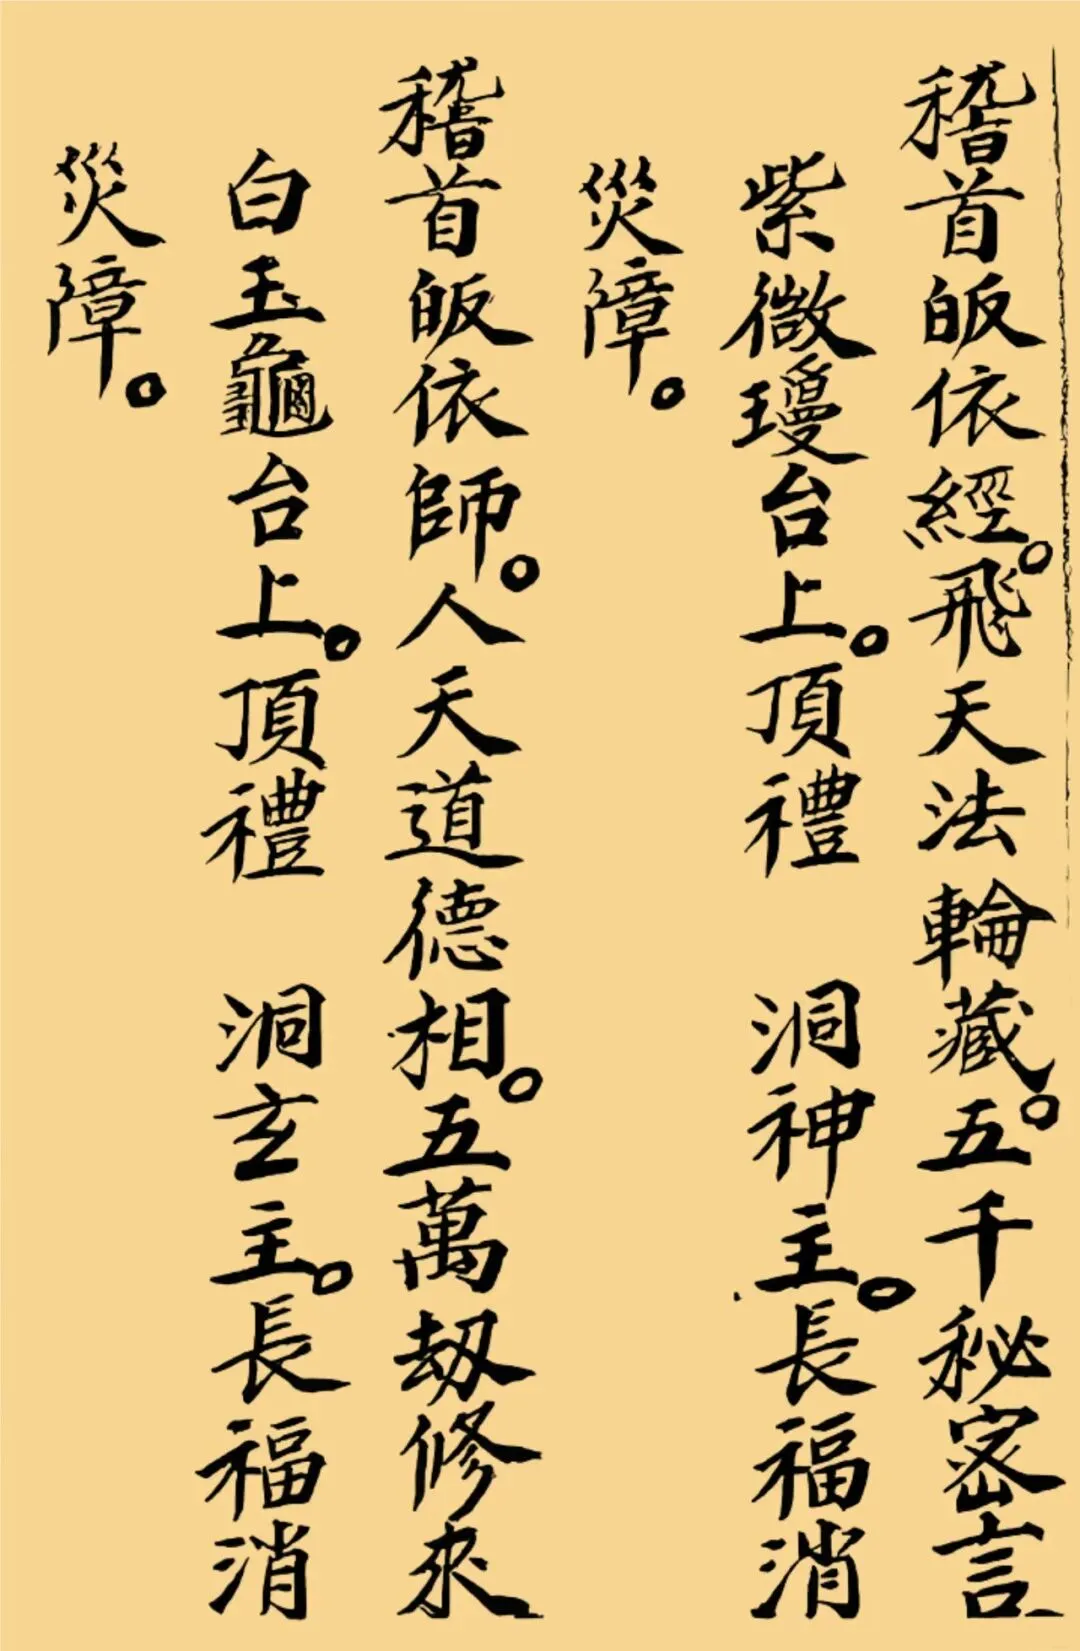 稽首皈依經。飛天法輪藏。五千秘密言
紫微瓊台上。頂禮 洞神主。長福消
災障。
稽首皈依師。人天道德相。五萬刼修來
白玉龜台上。頂禮 洞玄主。長福消
災障。